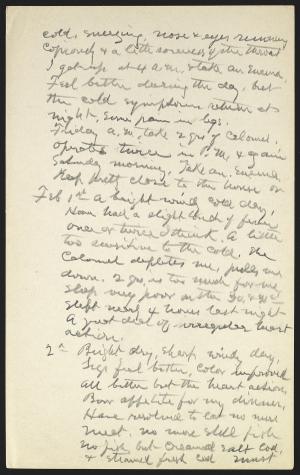 cold, sneezing, nose & eyes running
copiously & a little soreness of the throat
I got up at 4 A.M. & take an Enema,
Feel better during the day, but
the cold symptoms return at
night, some pain in legs.
Friday a.m. take 2 grs of Calomel,
operates twice in P.M. & again
Saturday morning. Take an Enema
Keep pretty close to the house on
Feb 1st a bright windy cold day,
Have had a slight touch of fever
once or twice I think. A little
too sensitive to the cold. The
Calomel depletes me, pulls me
down. 2 grs is too much for me
sleep very poor on the 30 & 31st
slept nearly 4 hours last night
A great deal of irregular heart
action.
2n Bright dry, sharp windy day,
Legs feel better, color improved
all better but the heart action,
Poor appetite for my dinner,
Have resolved to eat no more
meat. no more shell fish
no fish but creamed salt cod,
& steamed fresh cod must